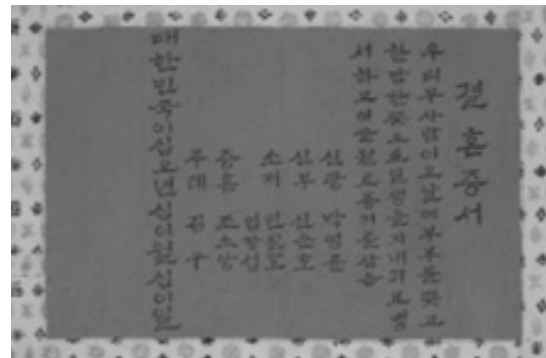 결혼증서
우리두사람이오날에부부를맺고
한맘한뜻으로일생을지내기로맹
서하고이글월로증거를삼음
신랑 박영준
신부 신순호
소개
증혼 조소앙
주례 김구
대한민국이십오년십이월십이일